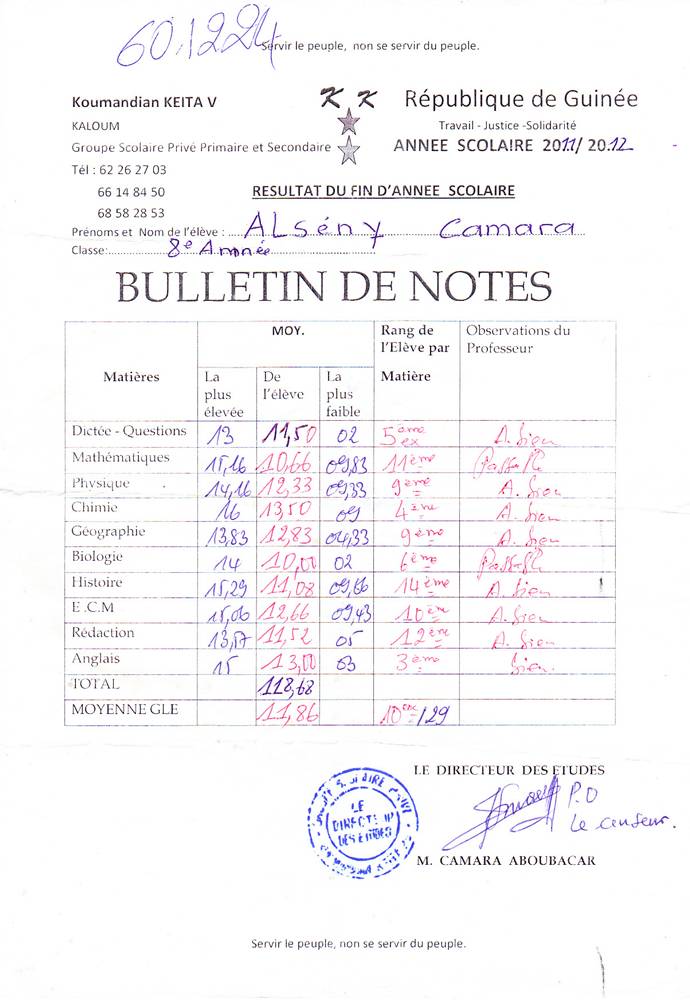 601224
Servir le peuple, non se servir du peuple.
Koumandian KEITA V
K K
République de Guinée
KALOUM
Travail - Justice -Solidarité
Groupe Scolaire Privé Primaire et Secondaire
ANNEE SCOLAIRE 2011/2012
Tél : 62 26 27 03
66 14 84 50
RESULTAT DU FIN D'ANNEE SCOLAIRE
68 58 28 53
Prénoms et Nom de l'élève : ALSény Camara
Classe: 8e Année
BULLETIN DE NOTES
Matières MOY. Rang de l'Elève par Matière Observations du Professeur
La plus élevée De l'éléve La plus faible
Dictée - Questions 13 11,50 02 5ème ex A. bien
Mathématiques 15,16 10,66 09,83 11ème Passable
Physique 14,16 12,33 09,33 9ème A. bien
Chimie 16 13,50 09 4ème A. bien
Géographie 13,83 12,83 04,33 9ème A. bien
Biologie 14 10,00 02 6ème Passable
Histoire 15,29 11,08 09,66 14ème A. bien
E .C.M 15,06 12,66 09,43 10ème A. bien
Rédaction 13,57 11,52 05 12ème A. bien
Anglais 15 13,00 03 3ème bien
TOTAL 118,68
MOYENNE GLE 11,86 10ex/29
LE DIRECTEUR DES ETUDES
P.O
Le censeur.
LE
DIRECTEUR
DES ETUDES
M. CAMARA ABOUBACAR
Servir le peuple, non se servir du peuple.